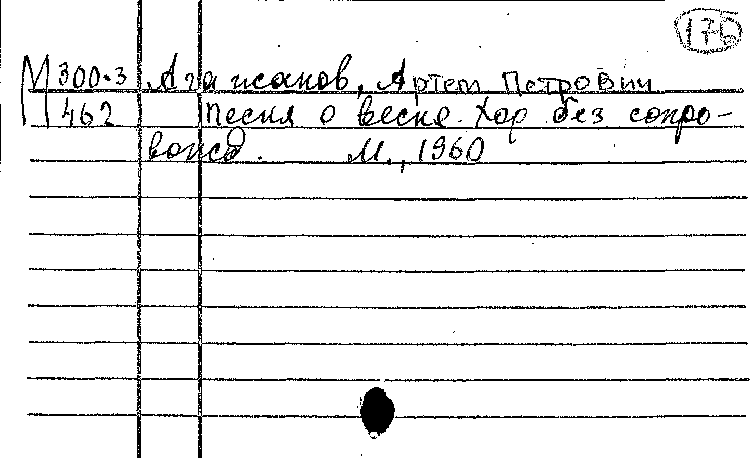 176
М 300-3 Агажанов, Артем Петрович
462 Песня о весне. Хор без сопро-
вожд. М., 1960